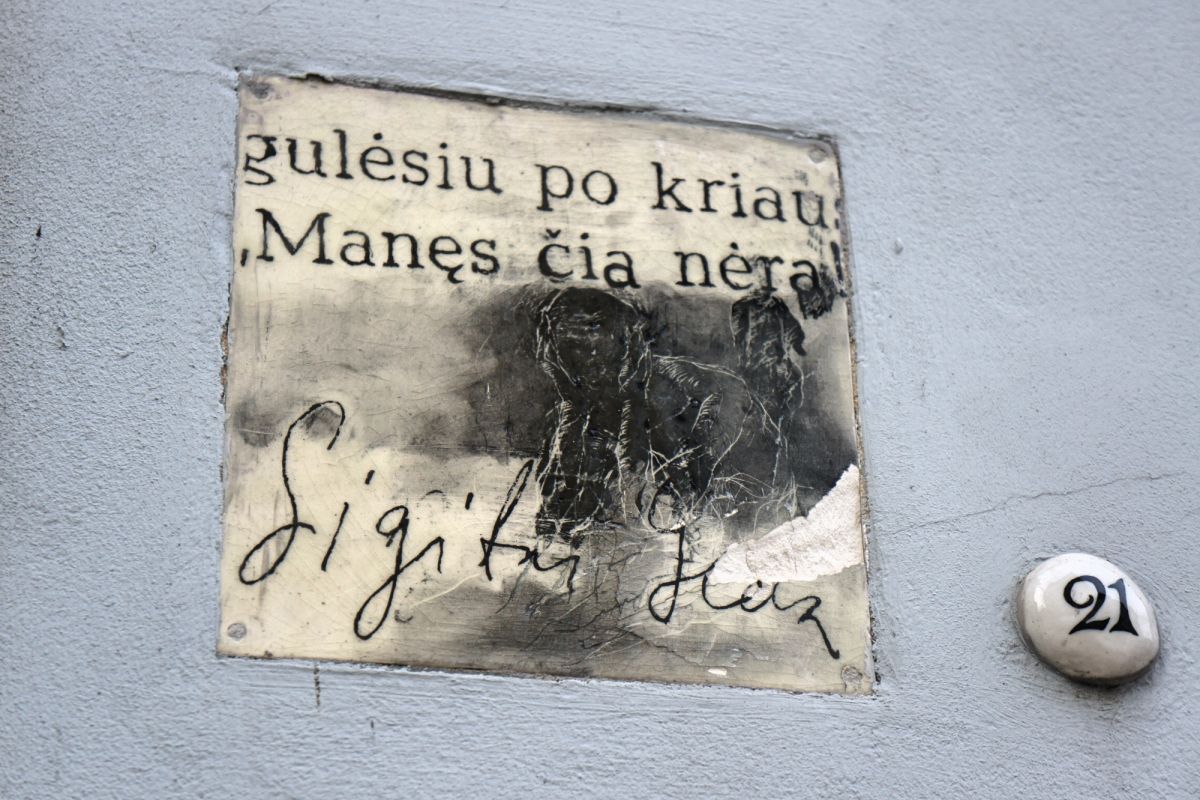 gulėsiu po kriau
‚Manęs čia nėra!
Sigitas
21